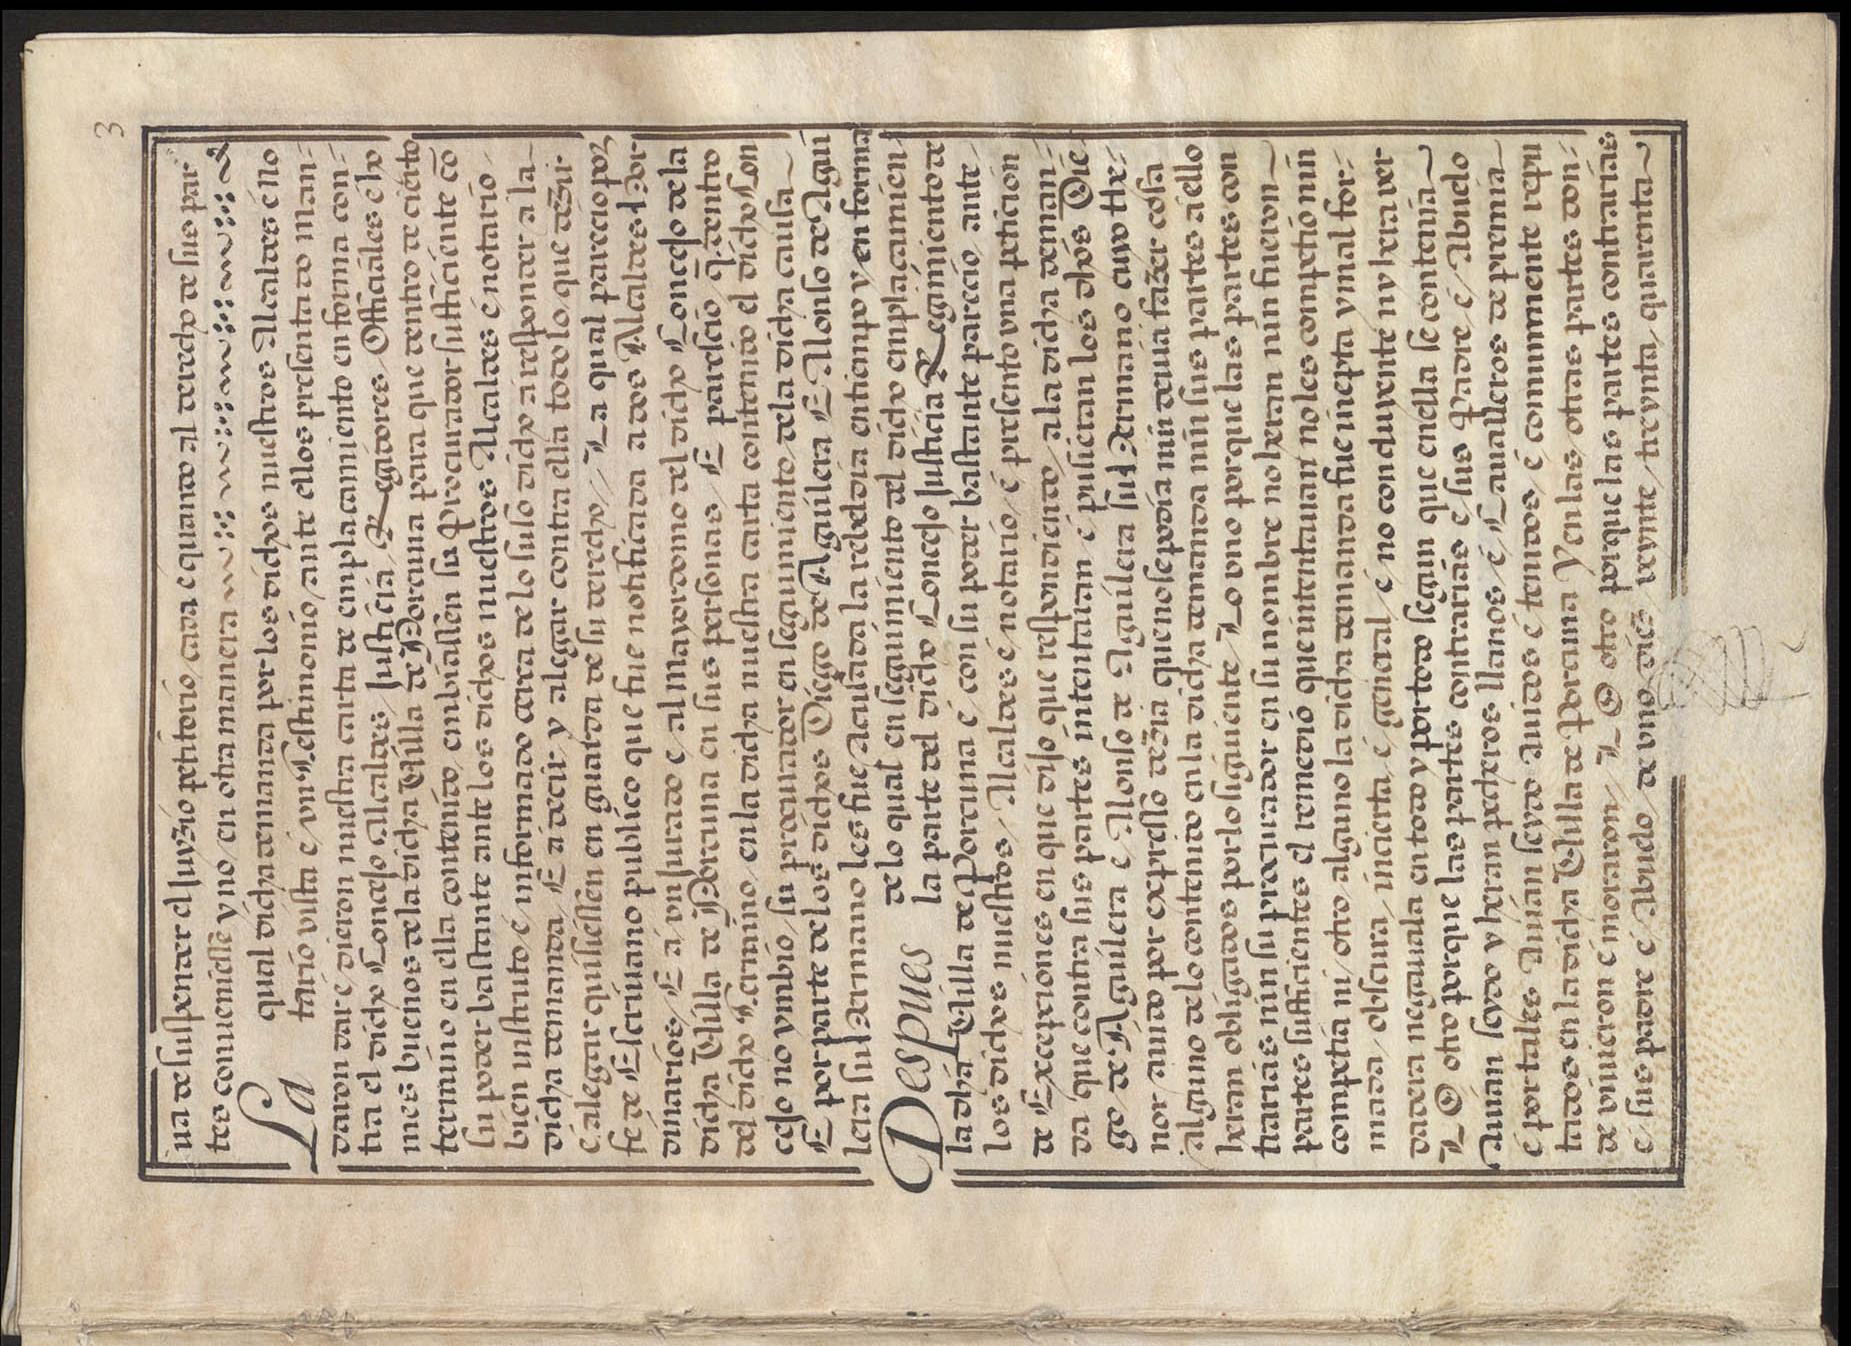 3
ua de suspender el juyzio petitorio, cada e quando al derecho de sus par
tes conueniesse y no / en otra manera
La qual dicha demanda por los dichos nuestros Alcaldes é no
tario vista é / vn Testimonio / ante ellos presentado man=
daron dar é dieron nuestra carta de emplacamiento en forma con=
tra el dicho Conçejo Alcaldes / justicia / Regidores / Officiales é ho
mes buenos de la dicha Villa de Porcuna para que dentro de cierto
termino en ella contenido / embiassen su Procurador sufficiente cō
su poder bastante ante los dichos nuestros Alcaldes é notario /
bien instruto é / informado cerca de lo suso dicho á responder a la
dicha demanda / E á decir y alegar contra ella todo lo / que dezir
é alegar quisiessen en guarda de su derecho // La qual parecio por
fe de Escriuano publico que fue notificada a dos Alcaldes hor
dinarios / E á / vn Jurado e al mayordomo del dicho Concejo de la
dicha Villa de Porcuna en sus personas / E parescio / q̄ dentro
del dicho Termino / en la dicha nuestra carta contenido el dicho Con
cejo no ymbió / su procurador en seguimiento de la dicha causa
E por parte de los dichos Diego de Aguilera E Alonso de Agui
lera su hermano les fue Acusada la rebeldia en tiempo y en forma
Despues de lo qual en seguimiento del dicho emplacamien
la parte del dicho Concejo justicia Regimiento de
la dhá Villa de Porcuna é / con su poder bastante pareció / ante
los dichos nuestros / Alcaldes é / notario / é presento vna peticion
de Exçepçiones en que dijo que respondiendo / a la dicha deman=
da que contra sus partes intentaran é pusieran los dhós Die
go de Aguilera e Alonso de Aguilera su hermano cuyo the=
nor / auido por expresso dezia que no se podia nin deuia fazer cosa
alguno de lo contenido en la dicha demanda nin sus partes á ello
heran obligados por lo siguiente / Lo vno porque las partes con
trarias nin su procurador en su nombre no heran nin fueron
partes sufficientes el remedio que intentauan no les competió nin
competia ni / otro alguno la dicha demanda fue inepta y mal for=
mada / obscura / incierta / é general / é no concluyente ny hera ver
dadera negauala en todo y por todo segun que en ella se contenia
LO otro porque las partes contrarias e / sus Padre é / Abuelo
Auian seydo y heran pecheros llanos / é Caualleros de premia
é por tales Auian seydo Auidos é tenidos / é communmente repu
tados en la dicha Villa de Porcuna Y en las / otras partes don=
de viuieron é moraron / LO otro porque las partes contrarias
é / sus padre é / Abuelo / de vno / diez / veynte / treynta / quarenta